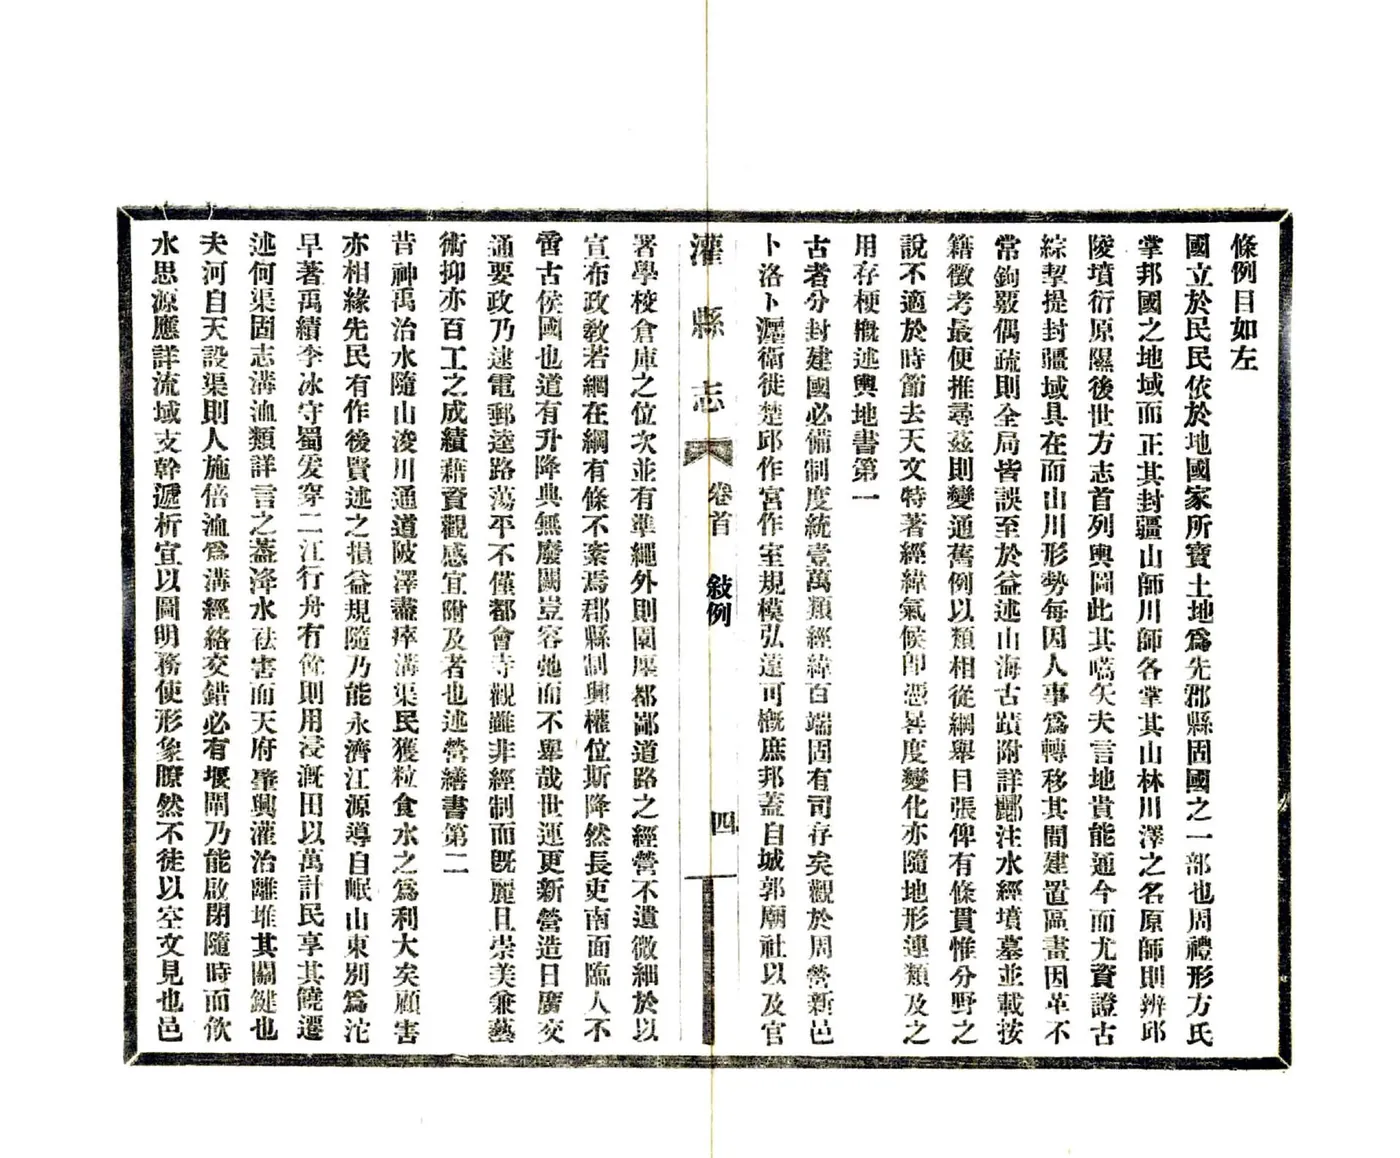 條例目如左
國立於民民依於地國家所寶土地爲先郡縣固國之一部也周禮形方氏
掌邦國之地域而正其封疆山師川師各掌其山林川澤之名原師則辨邱
陵墳衍原隰後世方志首列輿圖此其嚆矢夫言地貴能通今而尤資證古
綜挈提封疆域具在而山川形勢每因人事爲轉移其間建置區畫因革不
常鉤覈偶疏則全局皆誤至於益述山海古蹟附詳酈注水經墳墓並載按
籍徵考最便推尋茲則變通舊例以類相從綱舉目張俾有條貫惟分野之
說不適於時節去天文特著經緯氣候卽憑晷度變化亦隨地形連類及之
用存梗概述輿地書第一
古者分封建國必備制度統壹萬類經緯百端固有司存矣觀於周營新邑
卜洛卜瀍衞徙楚邱作宮作室規模弘遠可概庶邦蓋自城郭廟社以及官
灌縣志
卷首
敍例
四
署學校倉庫之位次並有準繩外則園廛都鄙道路之經營不遺微細於以
宣布政教若綱在綱有條不紊焉郡縣制興權位斯降然長吏南面臨人不
啻古侯國也道有升降典無廢闕豈容弛而不舉哉世運更新營造日廣交
通要政乃逮電郵逵路蕩平不僅都會寺觀雖非經制而既麗且崇美兼藝
術抑亦百工之成績藉資觀感宜附及者也述營繕書第二
昔神禹治水隨山浚川通道陂澤盡瘁溝渠民獲粒食水之爲利大矣顧害
亦相緣先民有作後賢述之損益規隨乃能永濟江源導自岷山東別爲沱
早著禹績李冰守蜀爰穿二江行舟有餘則用浸溉田以萬計民享其饒遷
述何渠固志溝洫類詳言之蓋洚水祛害而天府肇興灌治離堆其關鍵也
夫河自天設渠則人施倍洫爲溝經絡交錯必有堰閘乃能啟閉隨時而飲
水思源應詳流域支幹遞析宣以圖明務使形象瞭然不徒以空文見也邑